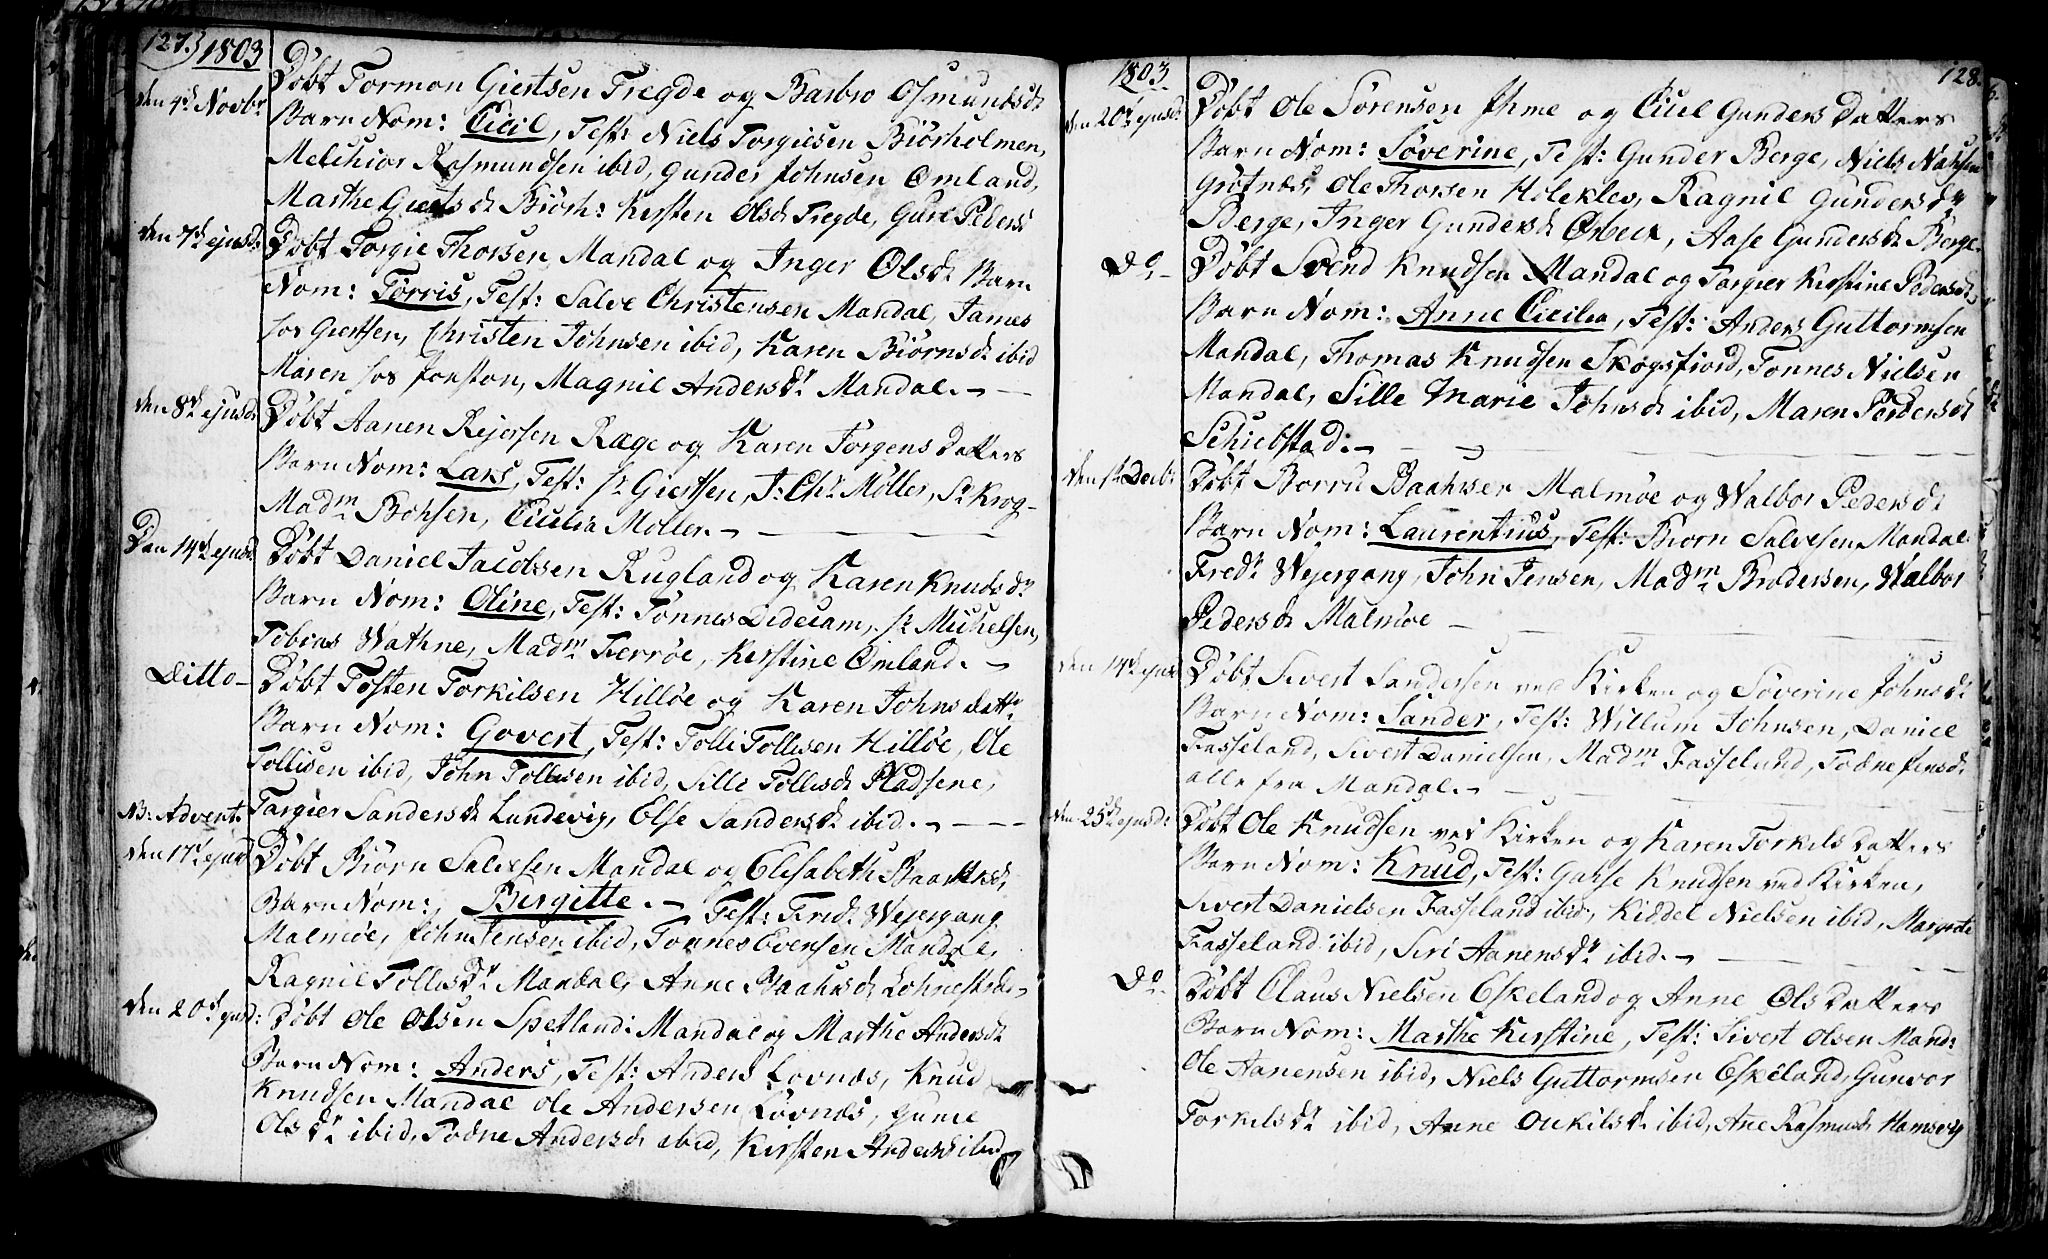 127.) 1803
den 4d Novbr Döbt Tormon Giertsen Tregde og Barbro Osmundsdr
Barn Nom: Cicil, Test: Niels Torgiesen Biörholmen,
Melchior Rasmundsen ibid, Gunder Johnsen Omland,
Marthe Giertsdr Biörh: Kirsten Olsdr Tregde, Guri Pedersdr
den 7d ejusd: Döbt Torgie Thorsen Mandal og Inger Olsdr Barn
Nom: Torris, Test: Salve Christensen Mandal, James
for Giertsen, Christen Johnsen ibid, Karen Biörnsdr ibid
Maren for Jonston, Magnil Andersdr Mandal.
den 8d ejusd: Döbt Aanen Rejersen Ræge og Karen Jörgensdatters
Barn Nom: Lars, Test: Sr Giertsen, J: Chr. Möller, Sr Krog
Madm Bohsen, Cicilia Möller.
Den 14d ejusd Döbt Daniel Jacobsen Rugland og Karen Knudsdr
Barn Nom: Oline, Test: Tönnes Dedecam, Sr Michelsen,
Tobias Wathne, Madm Ferröe, Kirstine Omland.
Ditto Döbt Tosten Torkilsen Hillöe og Karen Johnsdattr
Barn Nom: Govert, Test: Tolli Tollisen Hillöe, Ole
Tollisen ibid, John Tollisen ibid, Sille Tollisdr Pladsene,
Targier Sandersdr Lundevig, Else Sandersdr ibid.
NB: Advent
den 17d ejusd Döbt Biörn Salvesen Mandal og Elisabeth Baarensdr
Barn Nom: Bergitte. Test: Fredr Wejergang
Malmöe, John Jensen ibid, Tönnes Evensen Mandal,
Ragnil Tollisdr Mandal, Anne Baahusdr
den 20d ejusd: Döbt Ole Olsen Spetland: Mandal og Marthe Andersdr
Barn Nom: Anders, Test: Anders Lovnæs, Knud
Knudsen Mandal Ole Andersen Lövnæs, Gunil
Olsdr ibid, Todne Andersdr ibid, Kirsten Andersdr ibid
1803 128.
den 20d ejusd: Döbt Ole Sörensen Ihme og Cicil Gunders Datters
Barn Nom: Söverine, Test: Gunder Berge, Niels
Grötnæs, Ole Thorsen Holeklev, Ragnil Gundersdr
Berge, Inger Gundersdr Örbeck, Aase Gundersdr Berge.
Do Döbt Svend Knudsen Mandal og Targier Kirstine Pedersdr,
Barn Nom: Anne Cicilia, Test: Anders Guttormsen
Mandal, Thomas Knudsen Skogsfiord, Tönnes Nielsen
Mandal, Sille Marie Johnsdr ibid, Maren Pedersdr
Schiebstad.
den 1d Decb: Döbt Borre Baahusen Malmöe og Walbor Pedersdr
Barn Nom: Laurentius, Test: Biörn Salvesen Mandal
Fredr Wejergang, John Jensen, Madm Brodersen, Walbor
Pedersdr Malmöe
den 14d ejusd Döbt Sivert Sandersen ved Kirken og Söverine Johnsdr
Barn Nom: Sander, Test: Willum Johnsen, Daniel
Fasseland, Sivert Danielsen, Madm Fasseland, Todne Jensdr
alle fra Mandal.
den 25d ejusd: Döbt Ole Knudsen ved Kirken og Karen Torkils Datters
Barn Nom: Knud, Test: Gahse Knudsen ved Kirken,
Sivert Danielsen Fasseland ibid, Kiddel Nielsen ibid, Margrete
Fasseland ibid, Siri Aanensdr ibid.
Do Döbt Claus Nielsen Eskeland og Anne Ols Datters
Barn Nom: Marthe Kirstine, Test: Sivert Olsen Mand:
Ole Aanensen ibid, Niels Guttormsen Eskeland, Gunvor
Torkelsdr ibid, Anne Onkilsdr ibid, Ane Rasmusdr Hamsvig